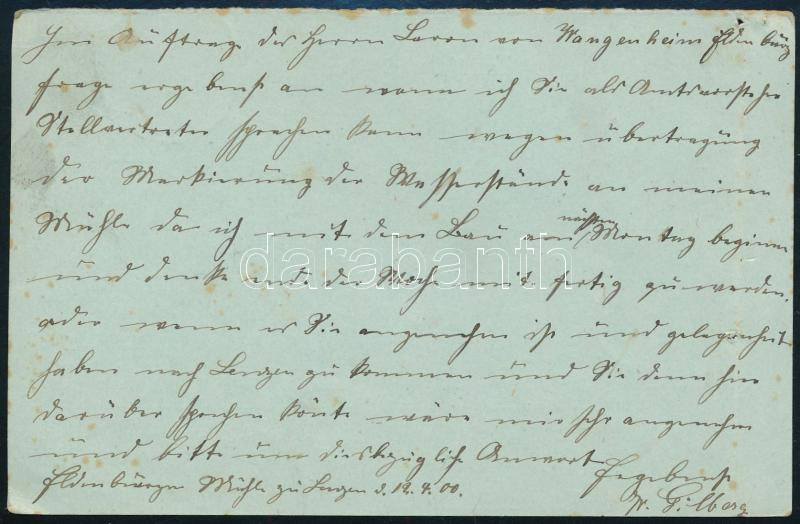 Im Auftrage des Herrn Baron von Wangenheim Eldenburg
frage ergebenst an wann ich Sie als Amtsvorsteher
Stellvertreter sprechen kann wegen übertragung
der Markierung der Wasserstände an meiner
Mühle da ich mit dem Bau am nächsten Montag beginne
und denke ende der Woche mit fertig zu werden.
oder wenn es Sie angenehm ist und gelegenheit
haben nach Lenzen zu kommen und Sie denn hier
darüber sprechen könte wäre mir sehr angenehm
und bitte um diesbezügliche Anwort
Ergebenst
Eldenburger Mühle zu Lenzen d. 19.4.00.
W. Gilberg
darabanth